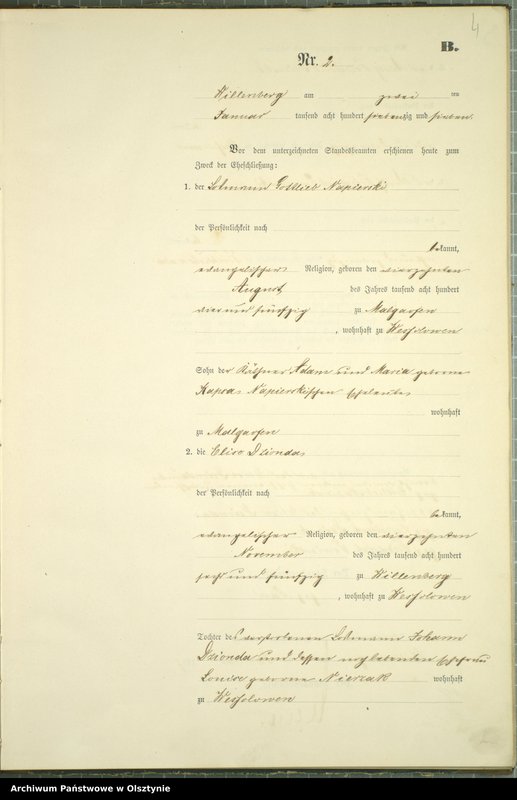 4
B.
Nr. 2.
Willenberg am zwei ten
Januar tausend acht hundert siebenzig und sieben.
Vor dem unterzeichneten Standesbeamten erschienen heute zum
Zweck der Eheschließung:
1. der Losmann Gottlieb Napierski
der Persönlichkeit nach
bekannt,
evangelischer Religion, geboren den vierzehnten
August des Jahres tausend acht hundert
vier und fünfzig zu Malgaofen
, wohnhaft zu Wessolowen
Sohn der Käthner Adam und Maria geborene
Kapras Napierskischen Eheleute
wohnhaft
zu Malgaofen
2. die Elise Dzionda
der Persönlichkeit nach
bekannt,
evangelischer Religion, geboren den vierzehnten
November des Jahres tausend acht hundert
sechs und fünfzig zu Willenberg
, wohnhaft zu Wessolowen
Tochter des verstorbenen Losmann Johann
Dzionda und dessen nachlebenden Ehefrau
Louise geborene Nierzak wohnhaft
zu Wessolowen
Archiwum Państwowe w Olsztynie